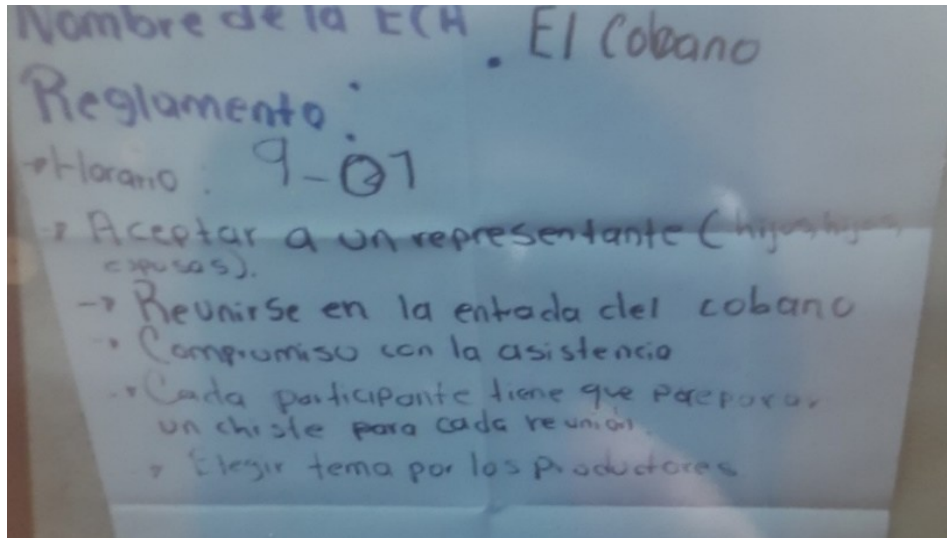 Nombre de la ECA . El Cobano
Reglamento:
→Horario: 9-01
→ Aceptar a un representante (hijos, hijas,
esposas).
→ Reunirse en la entrada del cobano
→ Compromiso con la asistencia
→ Cada participante tiene que preparar
un chiste para cada reunión.
→ Elegir tema por los productores